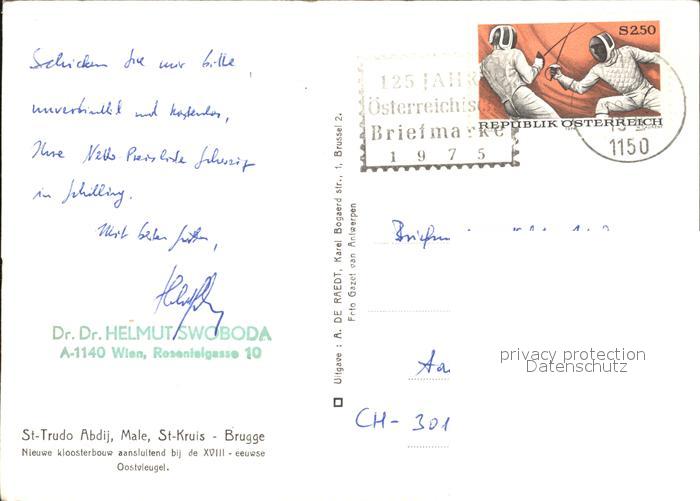 Schicken Sie mir bitte
unverbindlich und kostenlos,
Ihre Netto Preisliste Schweiz
in Schilling.
Mit besten Grüßen,
Dr. Dr. HELMUT SWOBODA
A-1140 Wien, Rosentalgasse 10
St-Trudo Abdij, Male, St-Kruis - Brugge
Nieuwe kloosterbouw aansluitend bij de XVIII - eeuwse
Oostvleugel.
Uitgave : A. DE RAEDT, Karel Bogaerd str., 1, Brussel 2.
Foto Gazet van Antwerpen
S2.50
REPUBLIK ÖSTERREICH
125 JAHR
Österreichisc
Briefmarke
1975
1150
CH- 301
privacy protection
Datenschutz